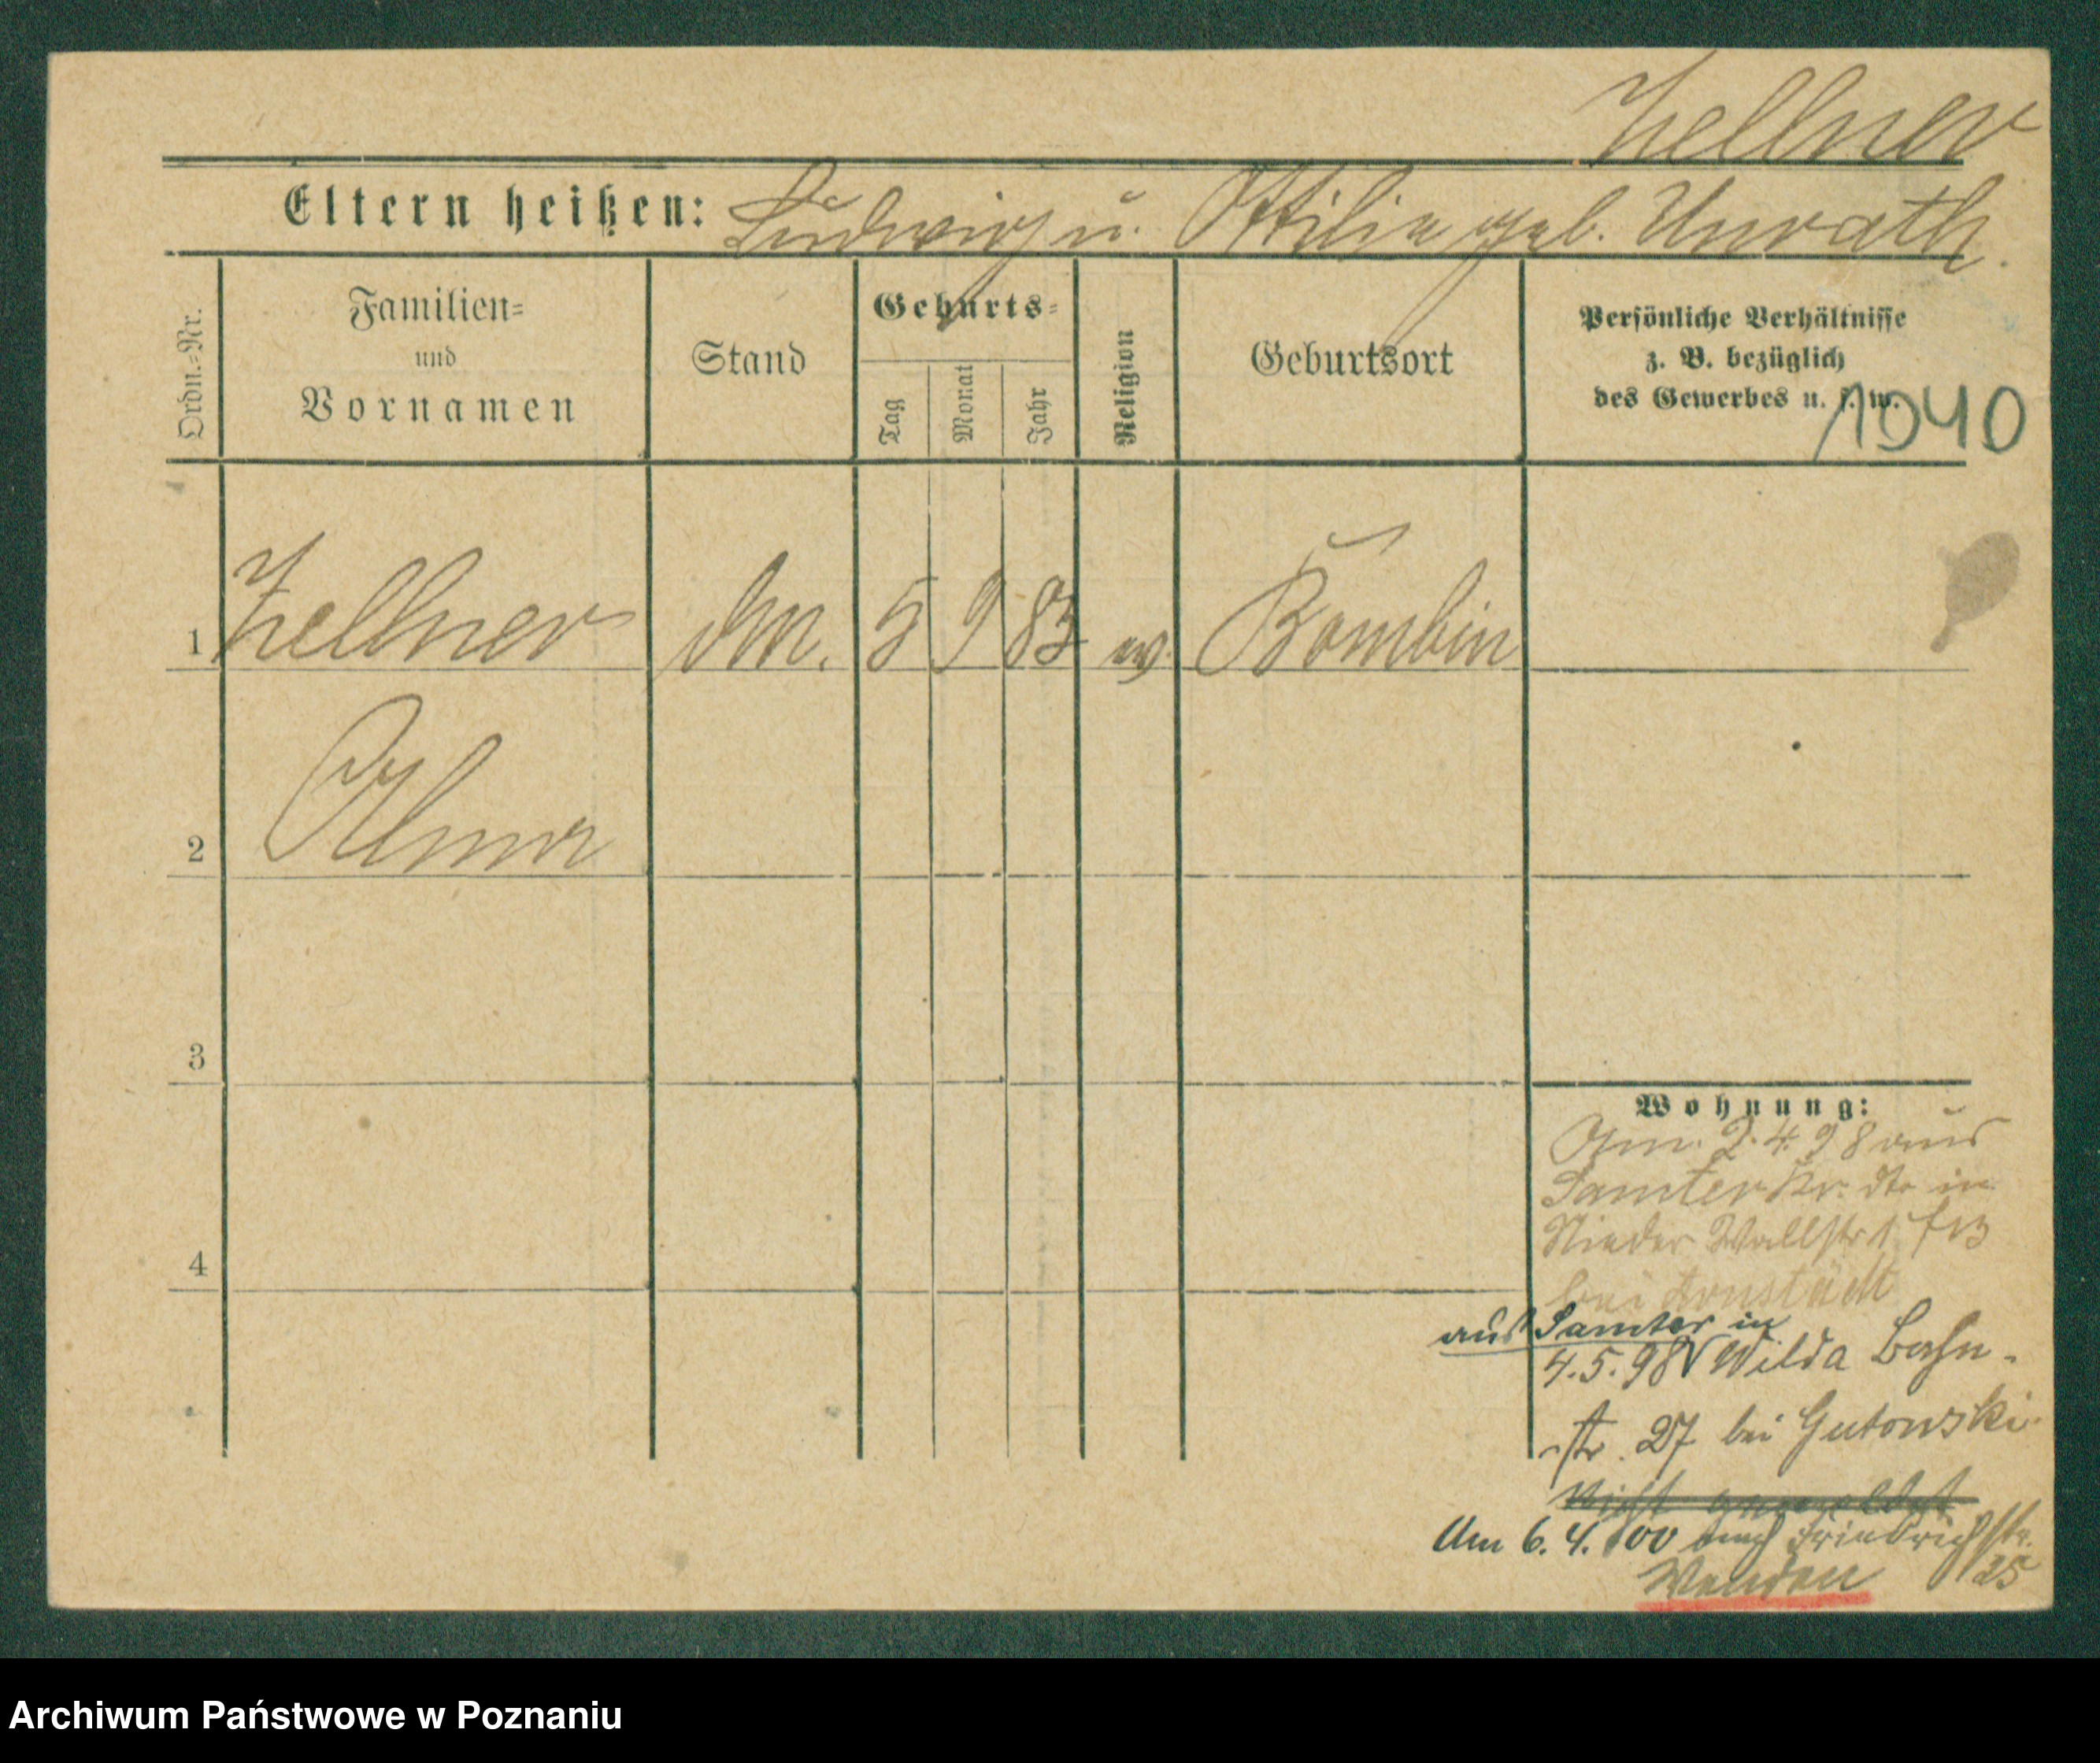 Zellner
Eltern heißen: Ludwig u. Ottilie geb. Unrath.
Ordn.=Nr.
Familien=
und
Vornamen
Stand
Geburts=
Tag
Monat
Jahr
Religion
Geburtsort
Persönliche Verhältnisse
z. B. bezüglich
des Gewerbes u. s. w.
1040
1 Zellner 5 9 83 ev. Bombin
2 Alma
3
4
Wohnung:
Am. 2.4.98 aus
Samter Kr. dto in
Nieder Wallstr 1
bei Arnstädt
aus Samter in
4.5.98 Wilda Bahn-
str. 27 bei Gutowski
nicht gemeldet
Am 6.4.00 nach Friedrichstr.
25
Wenden
Archiwum Państwowe w Poznaniu